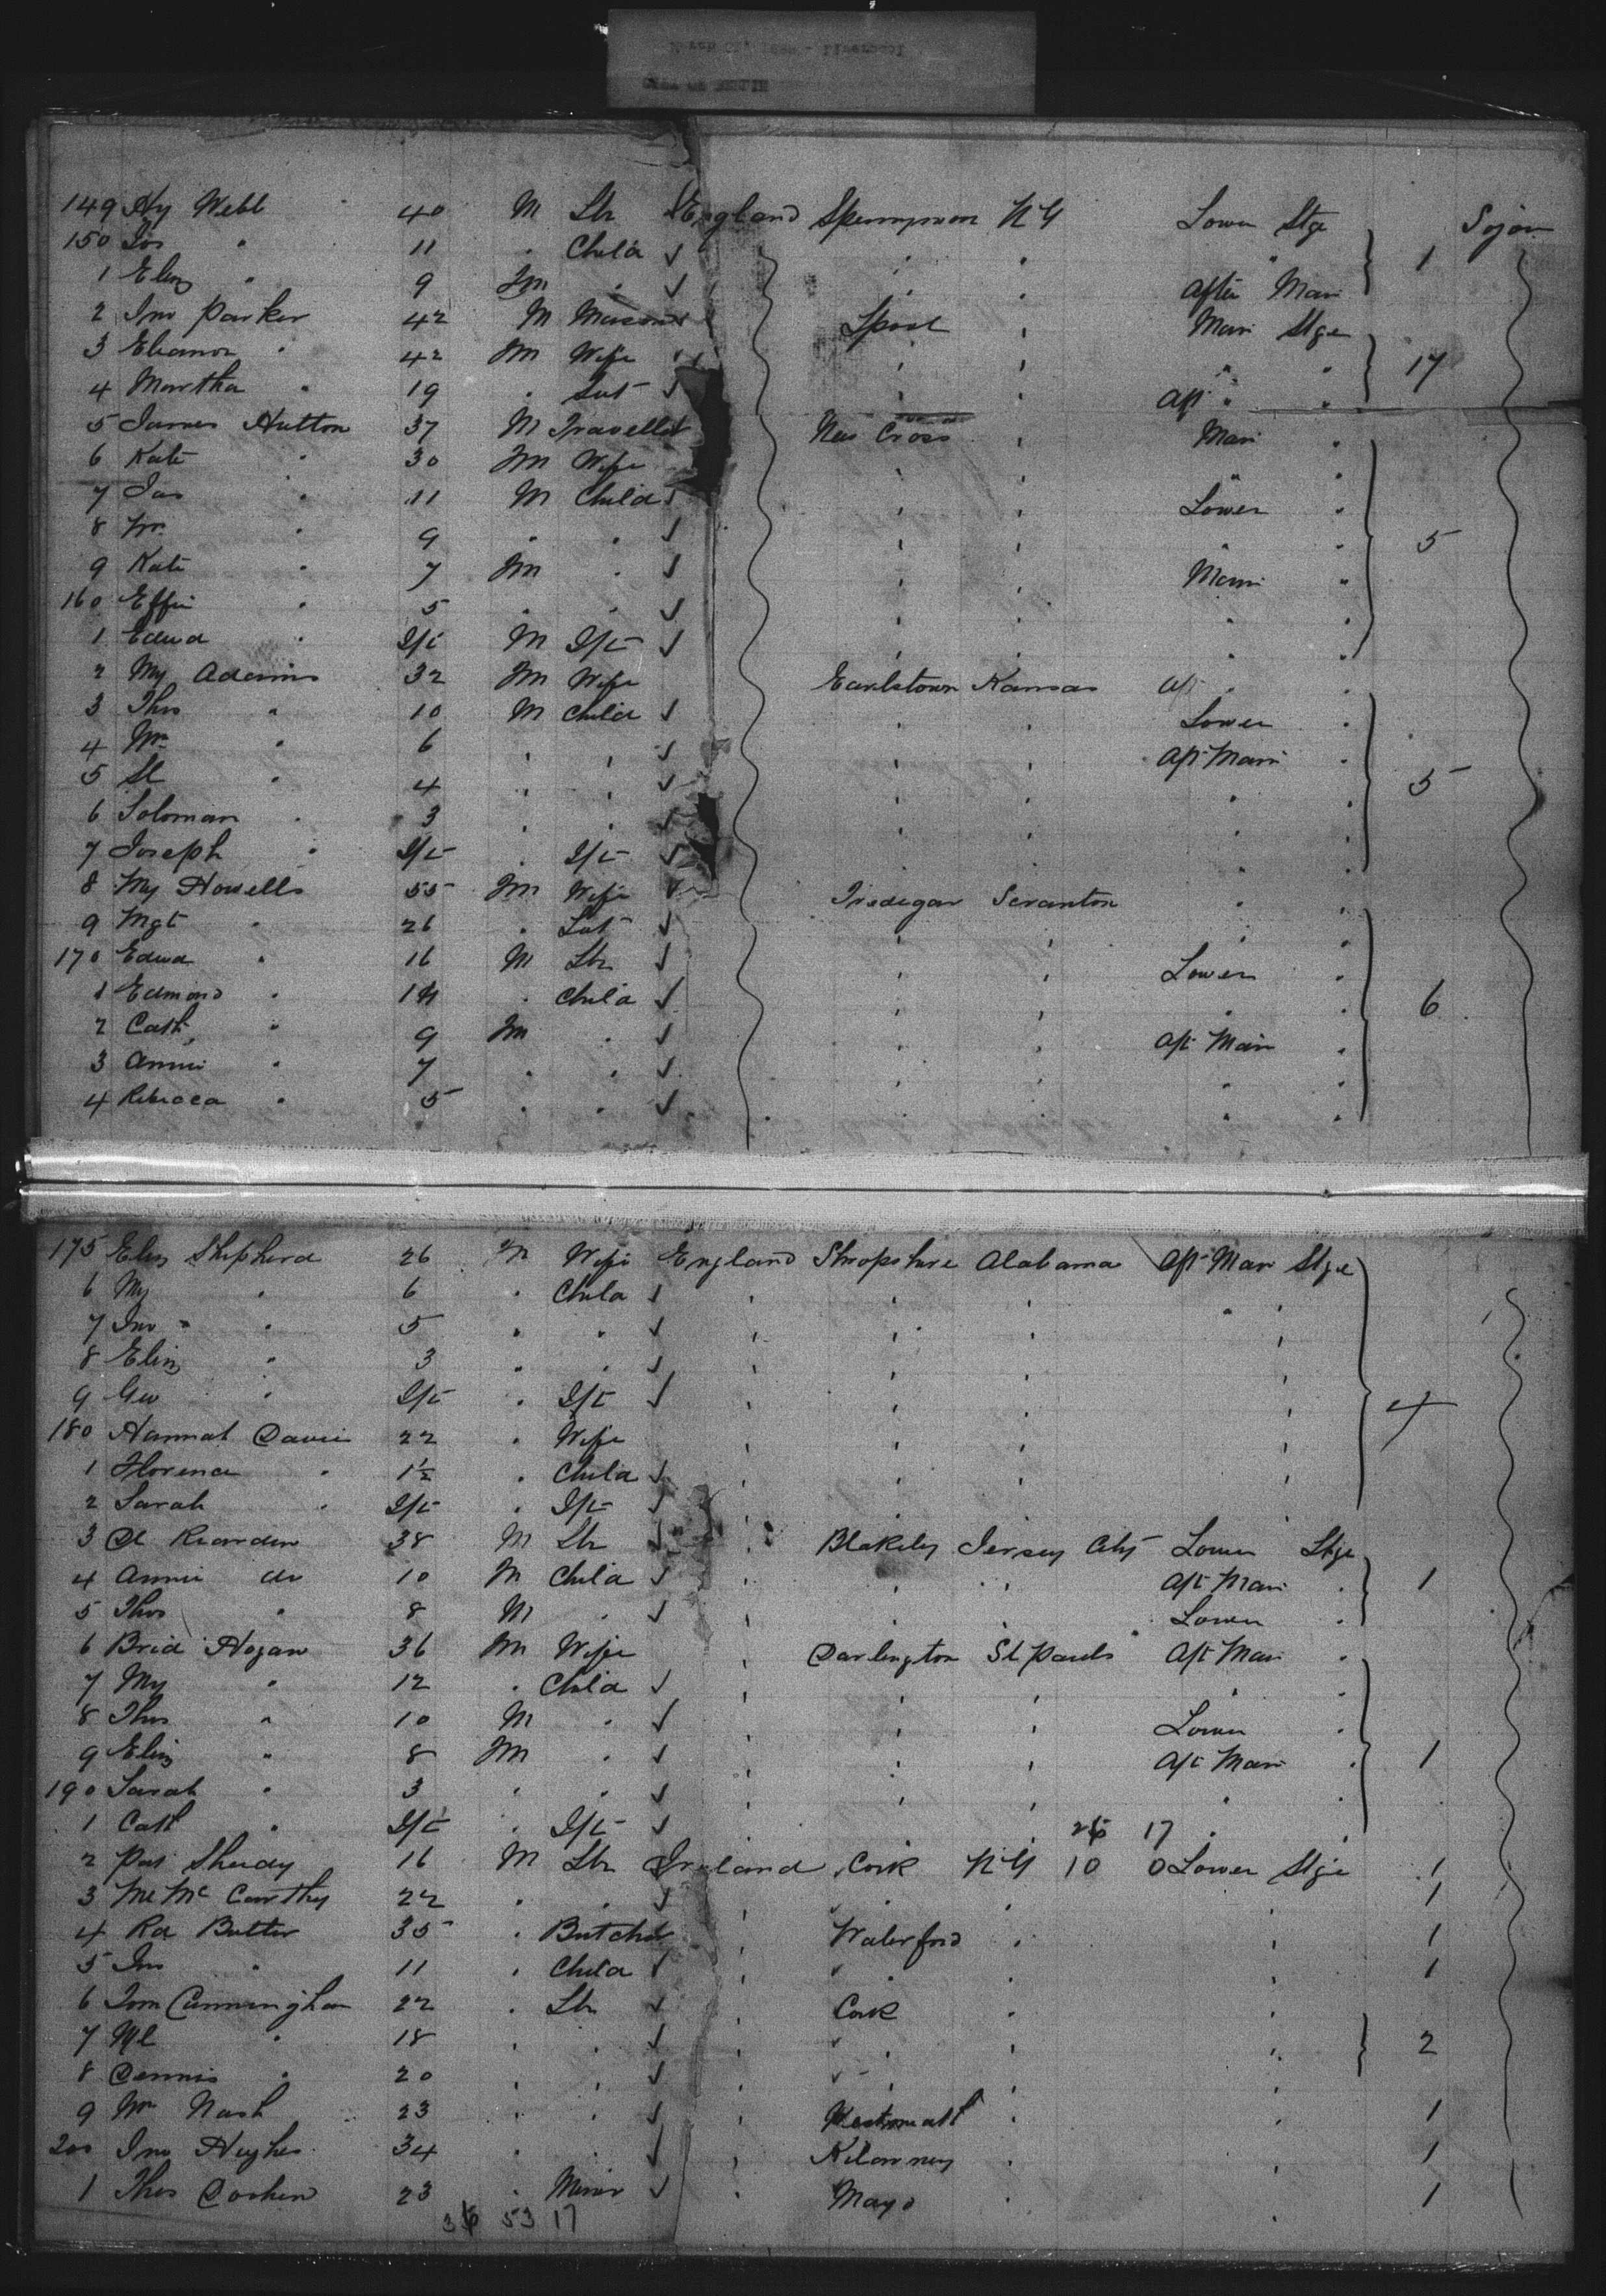 149 Hy Webb 40 M Lbr England Spennymoor NY Lower Stge Sojour
150 Jos " 11 " Child " " " 1
1 Eliz " 9 Fm " " " After Main
2 Jno Parker 42 M Mason Lpool " Main Stge
3 Eleanor " 42 Fm Wife " " " " 17
4 Martha " 19 " Svt " " Aft " "
5 James Hutton 37 M Traveller New Cross " Main "
6 Kate " 30 Fm Wife " " " "
7 Jas " 11 M Child " " Lower "
8 Wm " 9 " " " " " " 5
9 Kate " 7 Fm " " " Main "
160 Effie " 5 " " " " " "
1 Edwd " Ift M Ift " " " "
2 My Adams 32 Fm Wife Earlstown Kansas Aft " "
3 Thos " 10 M Child " " Lower "
4 Wm " 6 " " " " Aft Main "
5 Sl " 4 " " " " " " 5
6 Soloman " 3 " " " " " "
7 Joseph " Ift " Ift " " " "
8 My Howells 55 Fm Wife Tredegar Scranton " "
9 Mgt " 26 " Svt " " " "
170 Edwd " 16 M Lbr " " Lower "
1 Edmond " 14 " Child " " " " 6
2 Cath " 9 Fm " " " Aft Main "
3 Annie " 7 " " " " " "
4 Rebecca " 5 " " " " " "
175 Eliz Shepherd 26 Fm Wife England Shropshire Alabama Aft Main Stge
6 My " 6 " Child " " " " "
7 Jno " 5 " " " " " "
8 Eliz " 3 " " " " " "
9 Geo " Ift " Ift " " " "
180 Hannah Davis 22 " Wife " " " " 4
1 Florence " 1½ " Child " " " "
2 Sarah " Ift " Ift " " " "
3 Dl Reardon 38 M Lbr " Blakeley Jersey City Lower Stge
4 Annie do 10 Fm Child " " " Aft Main " 1
5 Thos " 8 M " " " " Lower "
6 Brid Hogan 36 Fm Wife " Darlington St Pauls Aft Main "
7 My " 12 " Child " " " " "
8 Thos " 10 M " " " " Lower "
9 Eliz " 8 Fm " " " " Aft Main " 1
190 Sarah " 3 " " " " " " "
1 Cath " Ift " Ift " " " 17 " "
2 Pat Sheedy 16 M Lbr Ireland Cork NY 10 0 Lower Stge 1
3 Ml McCarthy 22 " " " " " " 1
4 Rd Butler 35 " Butcher " Waterford " " 1
5 Jno " 11 " Child " " " " 1
6 Tom Cunningham 22 " Lbr " Cork " "
7 Ml " 18 " " " " " " 2
8 Dennis " 20 " " " " " "
9 Wm Nash 23 " " " Westmeath " " 1
200 Jno Hughes 34 " " " Kilarney " " 1
1 Thos 23 " Miner " Mayo " " 1
53 17